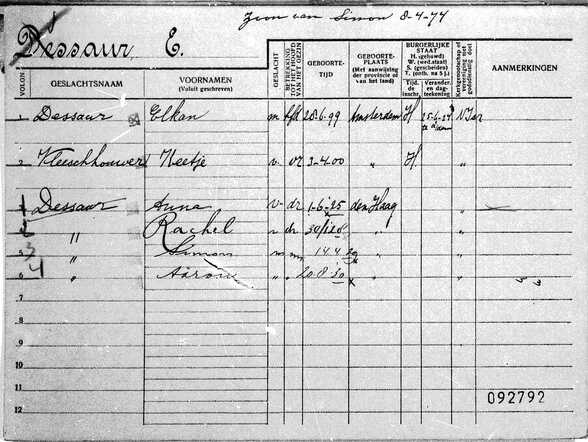 Zoon van Simon 8-4-74
Dessaur E.
VOLGN.
GESLACHTSNAAM
VOORNAMEN
(Voluit geschreven)
GESLACHT
BETREKKING TOT HET HOOFD VAN HET GEZIN
GEBOORTE-
TIJD
GEBOORTE-
PLAATS
(Met aanwijzing
der provincie of
van het land)
BURGERLIJKE
STAAT
H. (gehuwd)
W. (wed.staat)
S. (gescheiden)
Tijd.
de
inschr.
Verander.
en dag-
teekening
Kerkgenootschap of
vereeniging met
godsdienstig doel
AANMERKINGEN
1 Dessaur Elkan m hfd 28-6-99 Amsterdam H 25-6-24 N Isr
2 Vleeschhouwer Heetje v vr 3-4-00 " H "
1 Dessaur Anna v dr 1-6-25 den Haag "
2 " Rachel v dr " "
5 3 " Simon m " "
6 4 " Aäron " " 20.8.30 " "
7
8
9
10
11
12
092792